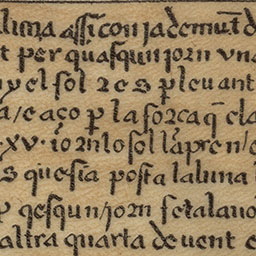 luna assi con ia demut d
t per quasqun iorn vna
y el sol 2 es p leuant
a / e aço p la força q ela
xv · iorn lo sol la pren / e
s que sia posta la luna
p qesqun / iorn fetalauo
altra quarta de vent e